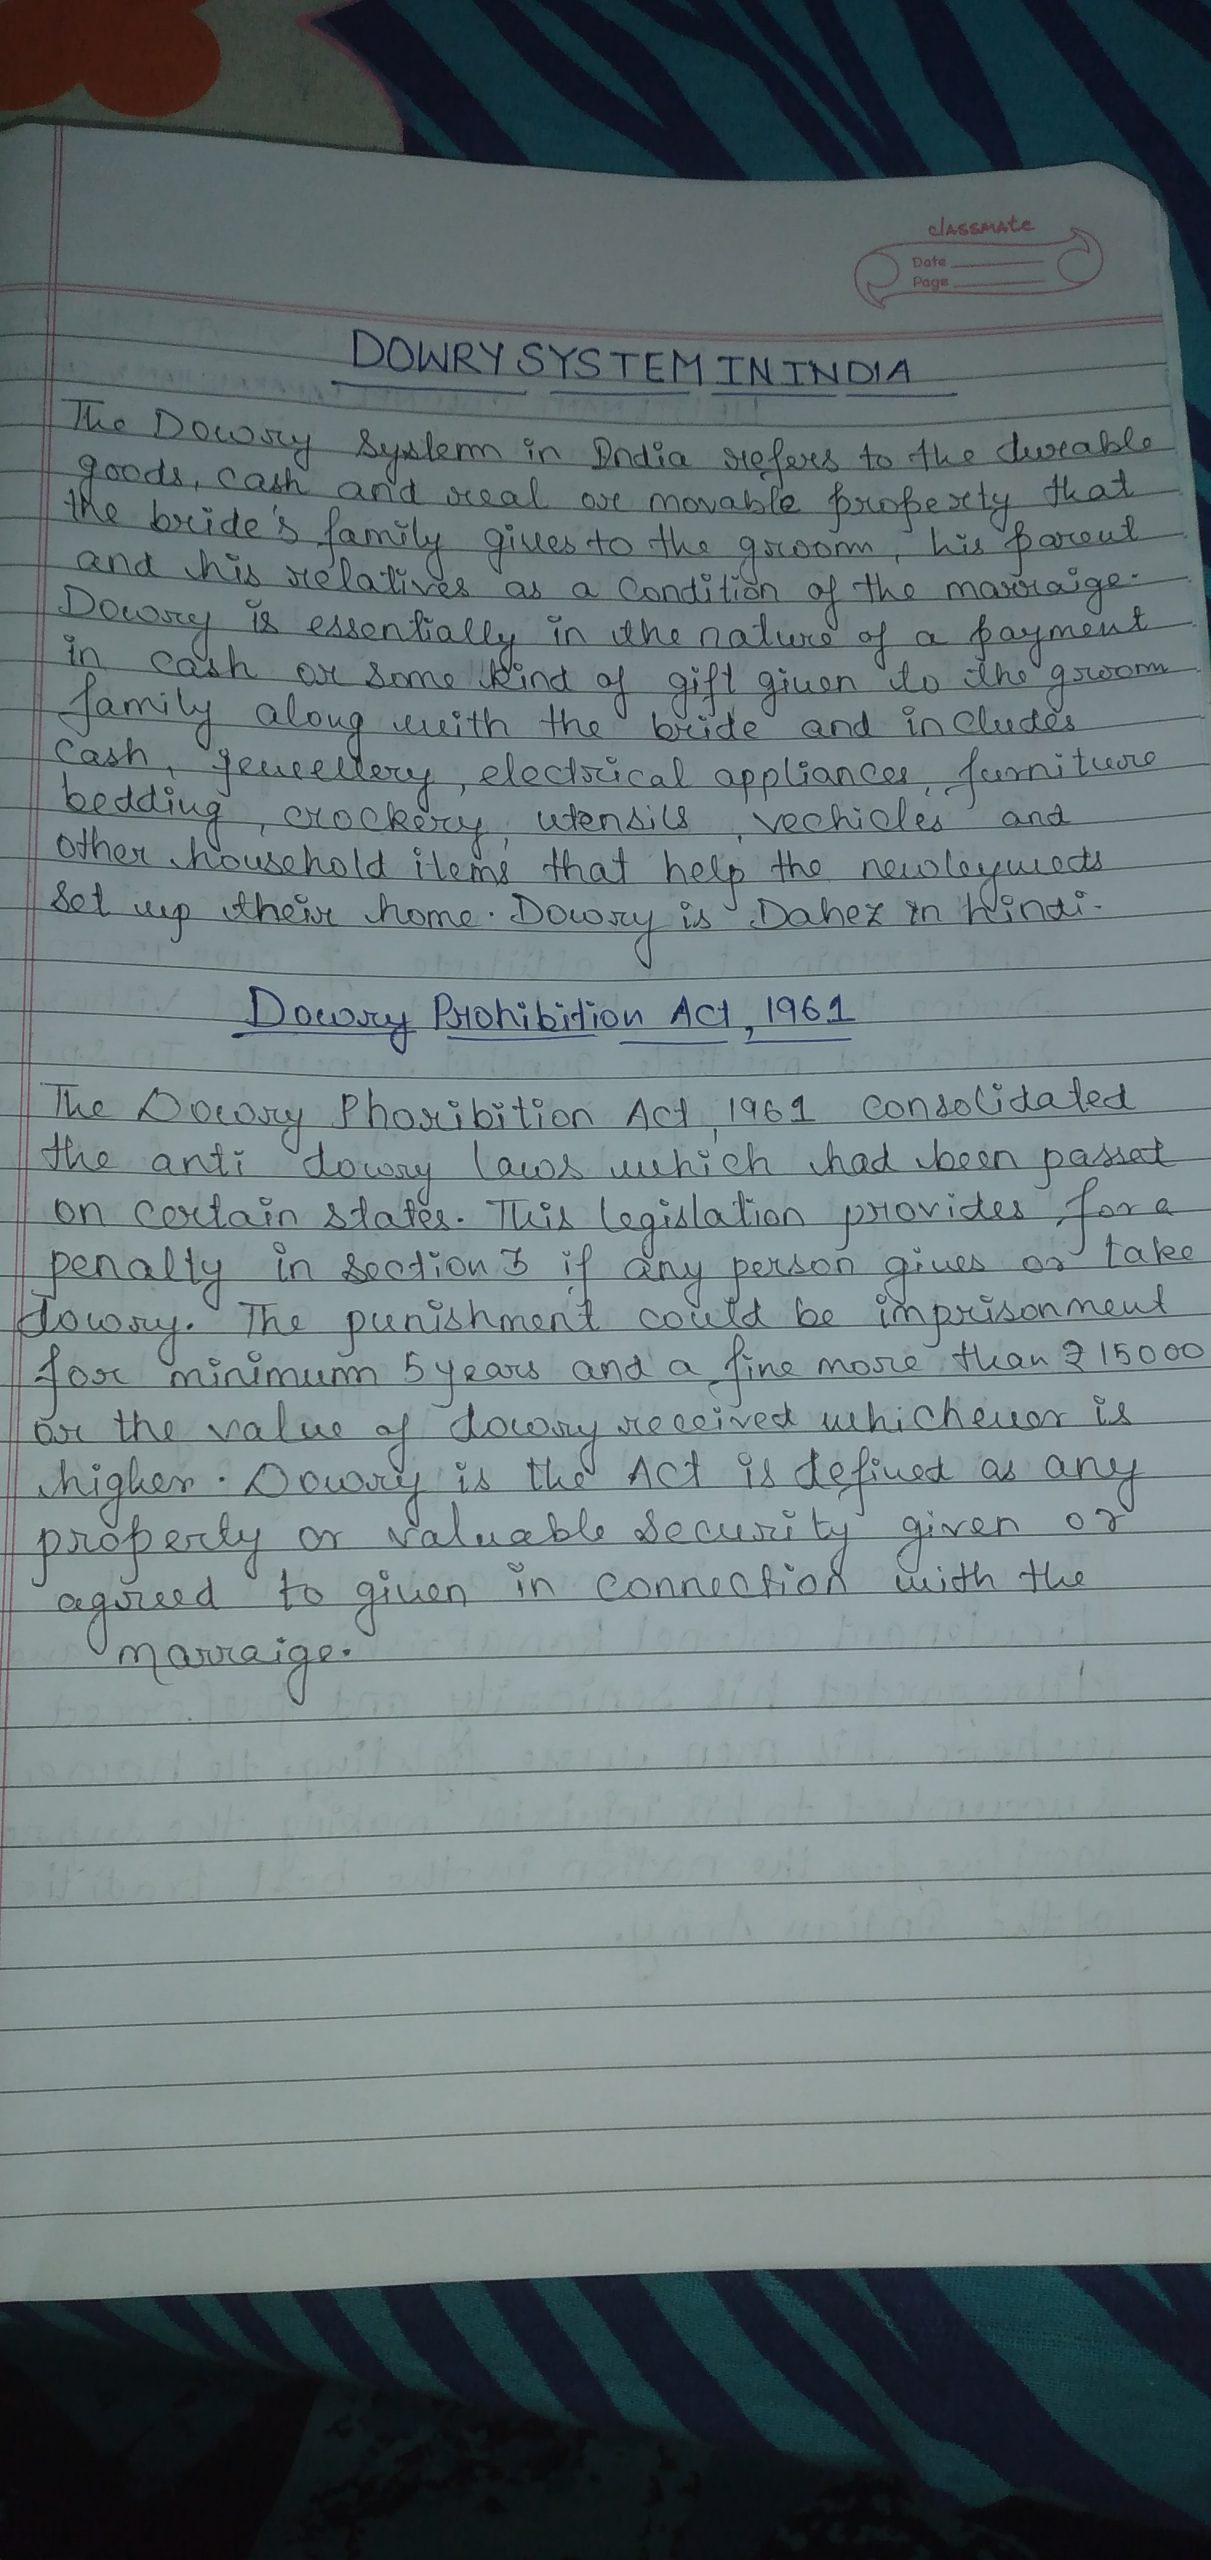 classmate
Date
Page
DOWRY SYSTEM IN INDIA
The Dowry System in India refers to the dureable
goods, cash and real or movable property that
the bride's family gives to the groom, his parent
and his relatives as a Condition of the marraige.
Dowry is essentially in the nature of a payment
in cash or some kind of gift given to the groom
family along with the bride and includes
Cash, jewellery, electrical appliances, furniture
bedding, crockery, utensils, vechicles and
other household items that help the newleyweds
set up their home. Dowry is Dahez in hindi.
Dowry Prohibition Act, 1961
The Dowry Phoribition Act, 1961 consolidated
the anti dowry laws which had been passed
on certain states. This legislation provides for a
penalty in section 3 if any person gives or take
dowry. The punishment could be imprisonment
for minimum 5 years and a fine more than ₹ 15000
or the value of dowry received whichever is
higher. Dowry is the Act is defined as any
property or valuable security given or
agreed to given in connection with the
marraige.